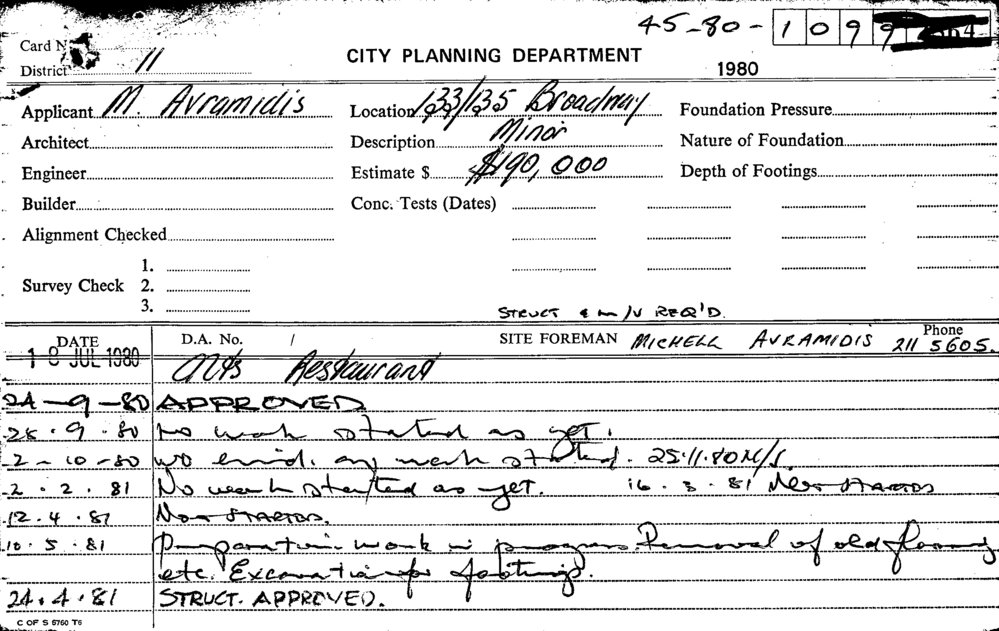 45-80-1099
Card N
District 11
CITY PLANNING DEPARTMENT
1980
Applicant M. Avramidis
Location 133/135 Broadway
Foundation Pressure
Architect
Description Minor
Nature of Foundation
Engineer
Estimate $ $190,000
Depth of Footings
Builder
Conc. Tests (Dates)
Alignment Checked
Survey Check 1.
2.
3.
STRUCT & m/v REQ'D.
DATE D.A. No. / SITE FOREMAN MICHELL AVRAMIDIS Phone 211 5605.
18 JUL 1980 Alts Restaurant
24-9-80 APPROVED
25.9.80 No work started as yet.
2-10-80 no evid. any work started. 25.11.80 N/S.
2.2.81 No work started as yet. 16.3.81 Not STARTED
12.4.81 Not STARTED.
10.5.81 Preparation work in progress. Removal of old flooring
etc. Excavation for footings.
24.4.81 STRUCT. APPROVED.
C OF S 6760 T6